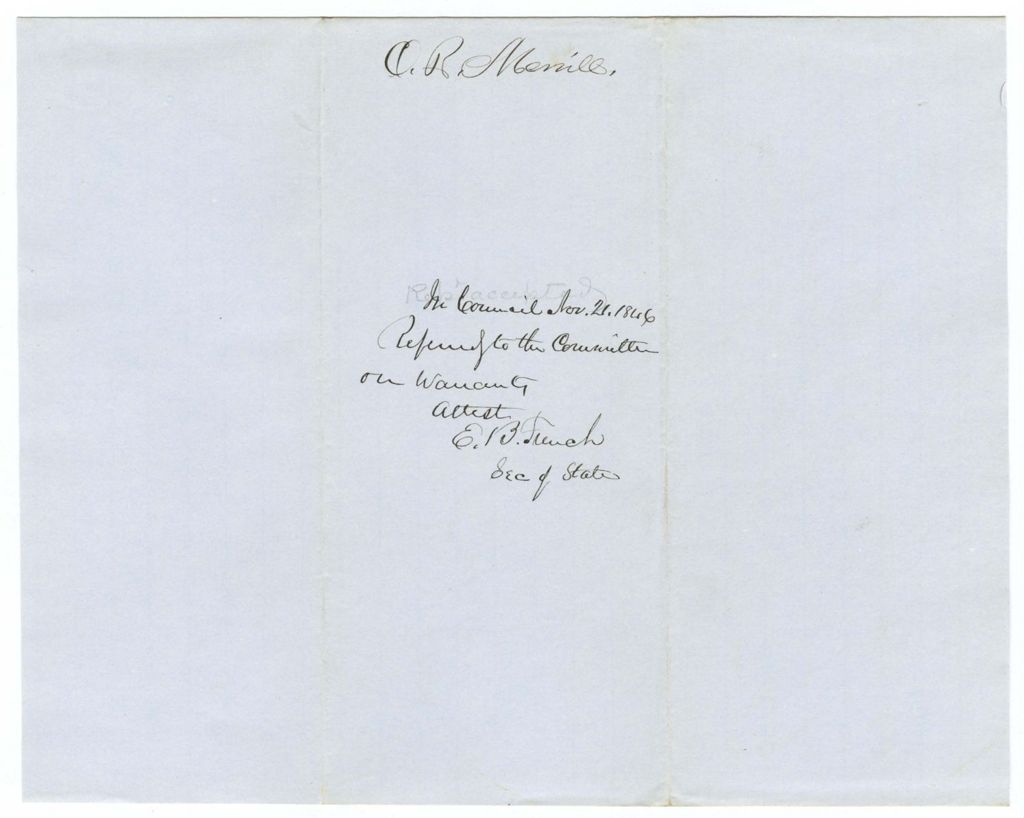 C. R. Merrill.
Rep. accepted
In Council Nov. 21. 1846
Referred to the Committee
on Warrants
Attest
E. B. French
Sec of State